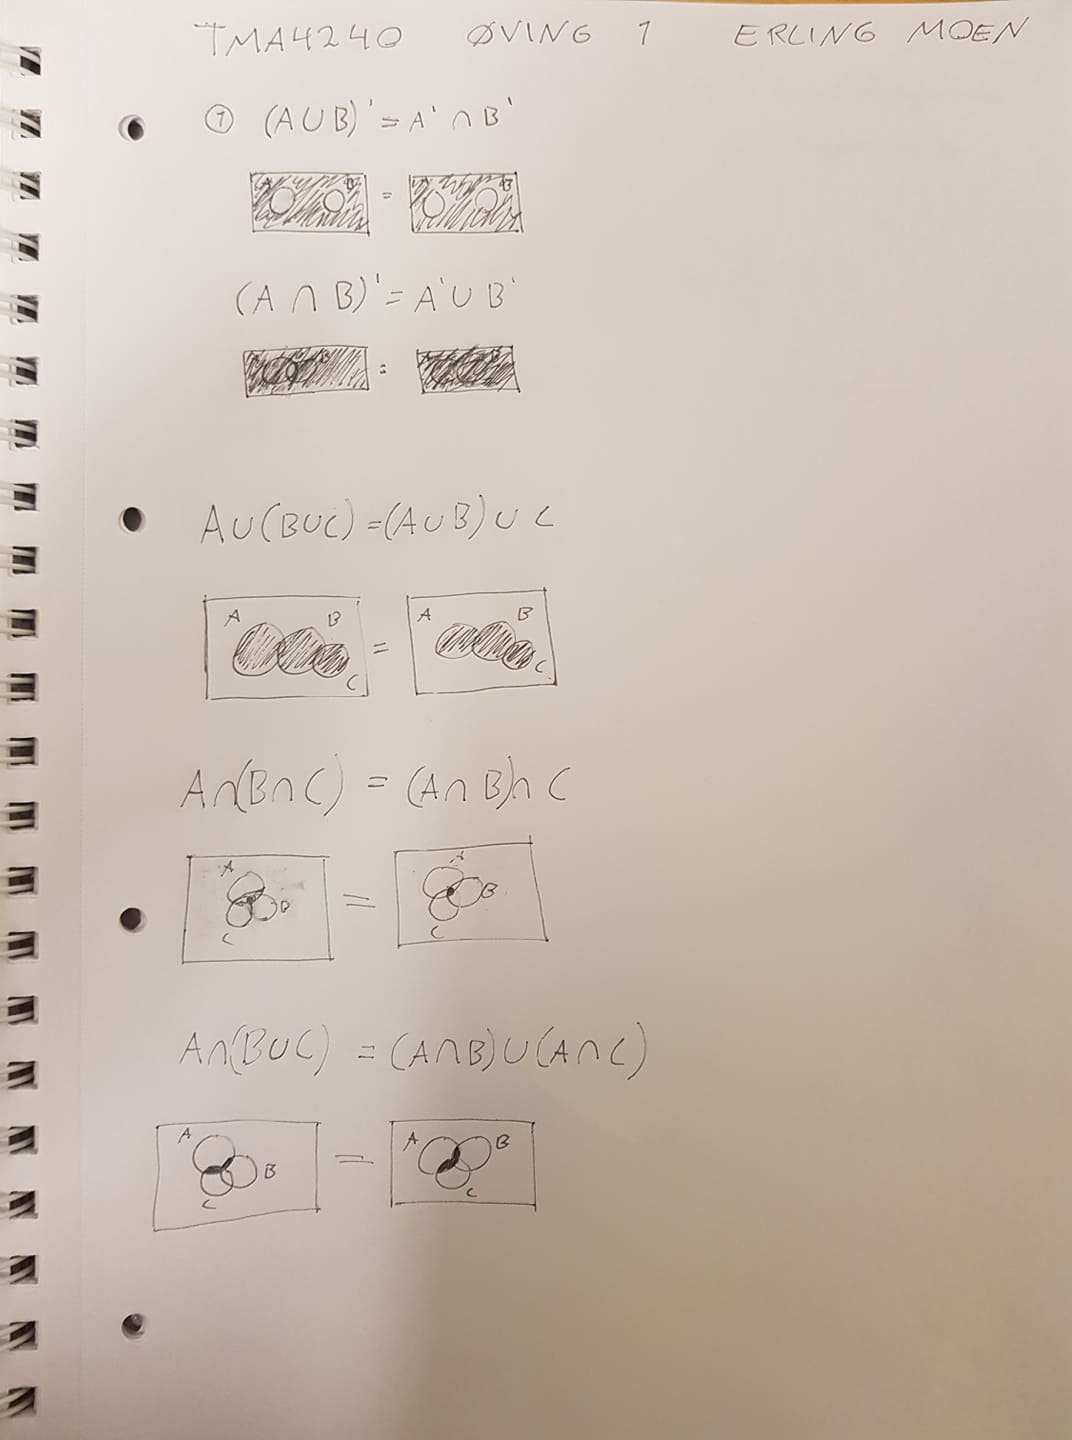 TMA4240 ØVING 1 ERLING MOEN
① (A∪B)' = A' ∩ B'
A B = A B
(A ∩ B)' = A' ∪ B'
B = A B
A∪(B∪C) = (A∪B) ∪ C
A B C = A B C
A∩(B∩C) = (A∩B)∩ C
A B C = A B C
A∩(B∪C) = (A∩B)∪(A∩C)
A B C = A B C